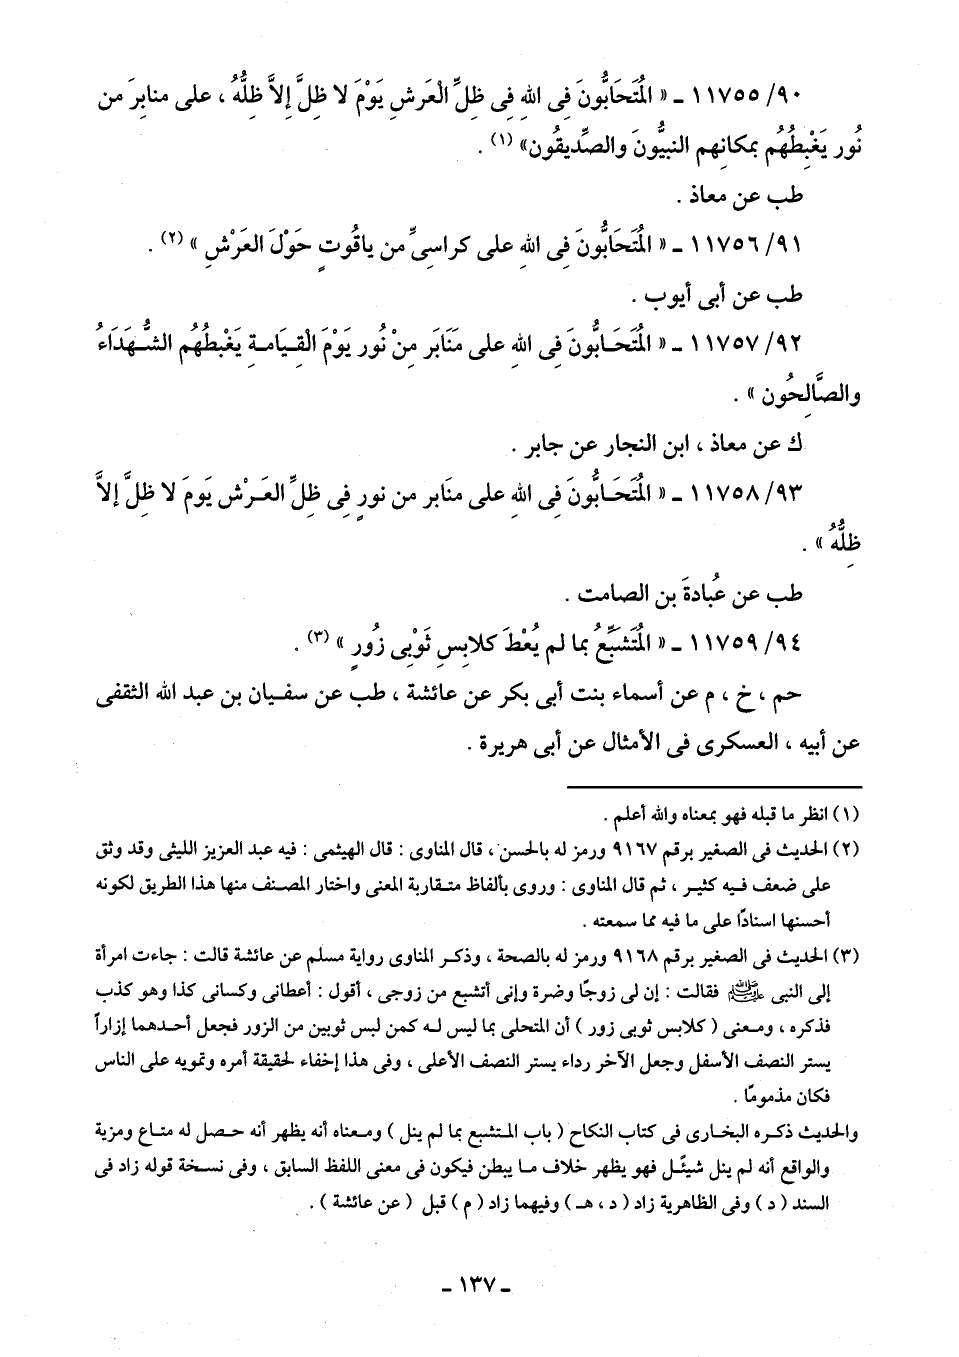 ١١٧٥٥/٩٠ ـ « المُتَحَابُّونَ فِى اللهِ فِى ظِلِّ الْعَرشِ يَوْمَ لا ظِلَّ إِلاَّ ظِلُّهُ ، على منابِرَ من
نُور يَغْبِطُهُم بمكانِهم النبيُّونَ والصِّديقُون» (١) .
طب عن معاذ .
١١٧٥٦/٩١ ـ « المُتَحَابُّونَ فِى اللهِ على كراسىِّ من ياقُوتٍ حَوْلَ العَرْشِ » (٢) .
طب عن أبى أيوب .
١١٧٥٧/٩٢ ـ « المُتَحَـابُّونَ فِى اللهِ على مَنَابَر مِنْ نُور يَوْمَ الْقِـيَامَـةِ يَغْبِطُهُم الشُّـهَدَاءُ
والصَّالِحُون » .
ك عن معاذ ، ابن النجار عن جابر .
١١٧٥٨/٩٣ ـ « المُتَحَـابُّونَ فِى اللهِ على منَابر من نورٍ فِى ظلِّ العَـرْش يَومَ لا ظلَّ إلاَّ
ظِلُّهُ » .
طب عن عُبادةَ بن الصامت .
١١٧٥٩/٩٤ ـ « المُتَشَبِّعُ بما لم يُعْطَ كلابِسِ ثَوْبِى زُورٍ » (٣) .
حم ، خ ، م عن أسماء بنت أبى بكر عن عائشة ، طب عن سفـيان بن عبد الله الثقفى
عن أبيه ، العسكرى فى الأمثال عن أبى هريرة .
(١) انظر ما قبله فهو بمعناه والله أعلم .
(٢) الحديث فى الصغير برقم ٩١٦٧ ورمز له بالحسن ، قال المناوى : قال الهيثمى : فيه عبد العزيز الليثى وقد وثق
على ضعف فـيه كثيـر ، ثم قال المناوى : وروى بألفاظ متـقاربة المعنى واختار المصنف منها هذا الطريق لكونه
أحسنها اسنادًا على ما فيه مما سمعته .
(٣) الحديث فى الصغير برقم ٩١٦٨ ورمز له بالصحة ، وذكـر المناوى رواية مسلم عن عائشة قالت : جاءت امرأة
إلى النبى ﷺ فقالت : إن لى زوجًا وضرة وإنى أتشبع من زوجى ، أقول : أعطانى وكسانى كذا وهو كذب
فذكره ، ومـعنى ( كلابس ثوبى زور ) أن المتحلى بما ليس لـه كمن لبس ثوبين من الزور فجعل أحـدهما إزاراً
يستر النصف الأسفل وجعل الآخر رداء يستر النصف الأعلى ، وفى هذا إخفاء لحقيقة أمره وتمويه على الناس
فكان مذمومًا .
والحديث ذكـره البخـارى فى كتاب النكاح ( باب المـتشبع بما لم ينل ) ومـعناه أنه يظهر أنه حـصل له متـاع ومزية
والواقع أنه لم ينل شيئـًـا فهو يظهر خلاف مـا يبطن فيكون فى معنى اللفظ السابق ، وفى نسـخة قوله زاد فى
السند ( د ) وفى الظاهرية زاد ( د ، هـ ) وفيهما زاد ( م ) قبل ( عن عائشة ) .
ـ ١٣٧ ـ